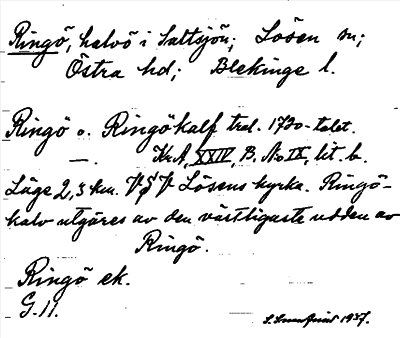 Ringö, halvö i Saltsjön; Lösen sn;
Östra hd; Blekinge l.
Ringö o. Ringökalf trol. 1720-talet.
—. Kr.A, XXIV, B, No IX, lit. b.
Läge 2,3 km. VSV Lösens kyrka. Ringö-
kalv utgöres av den västligaste udden av
Ringö.
Ringö ek.
G. 11.
1937.